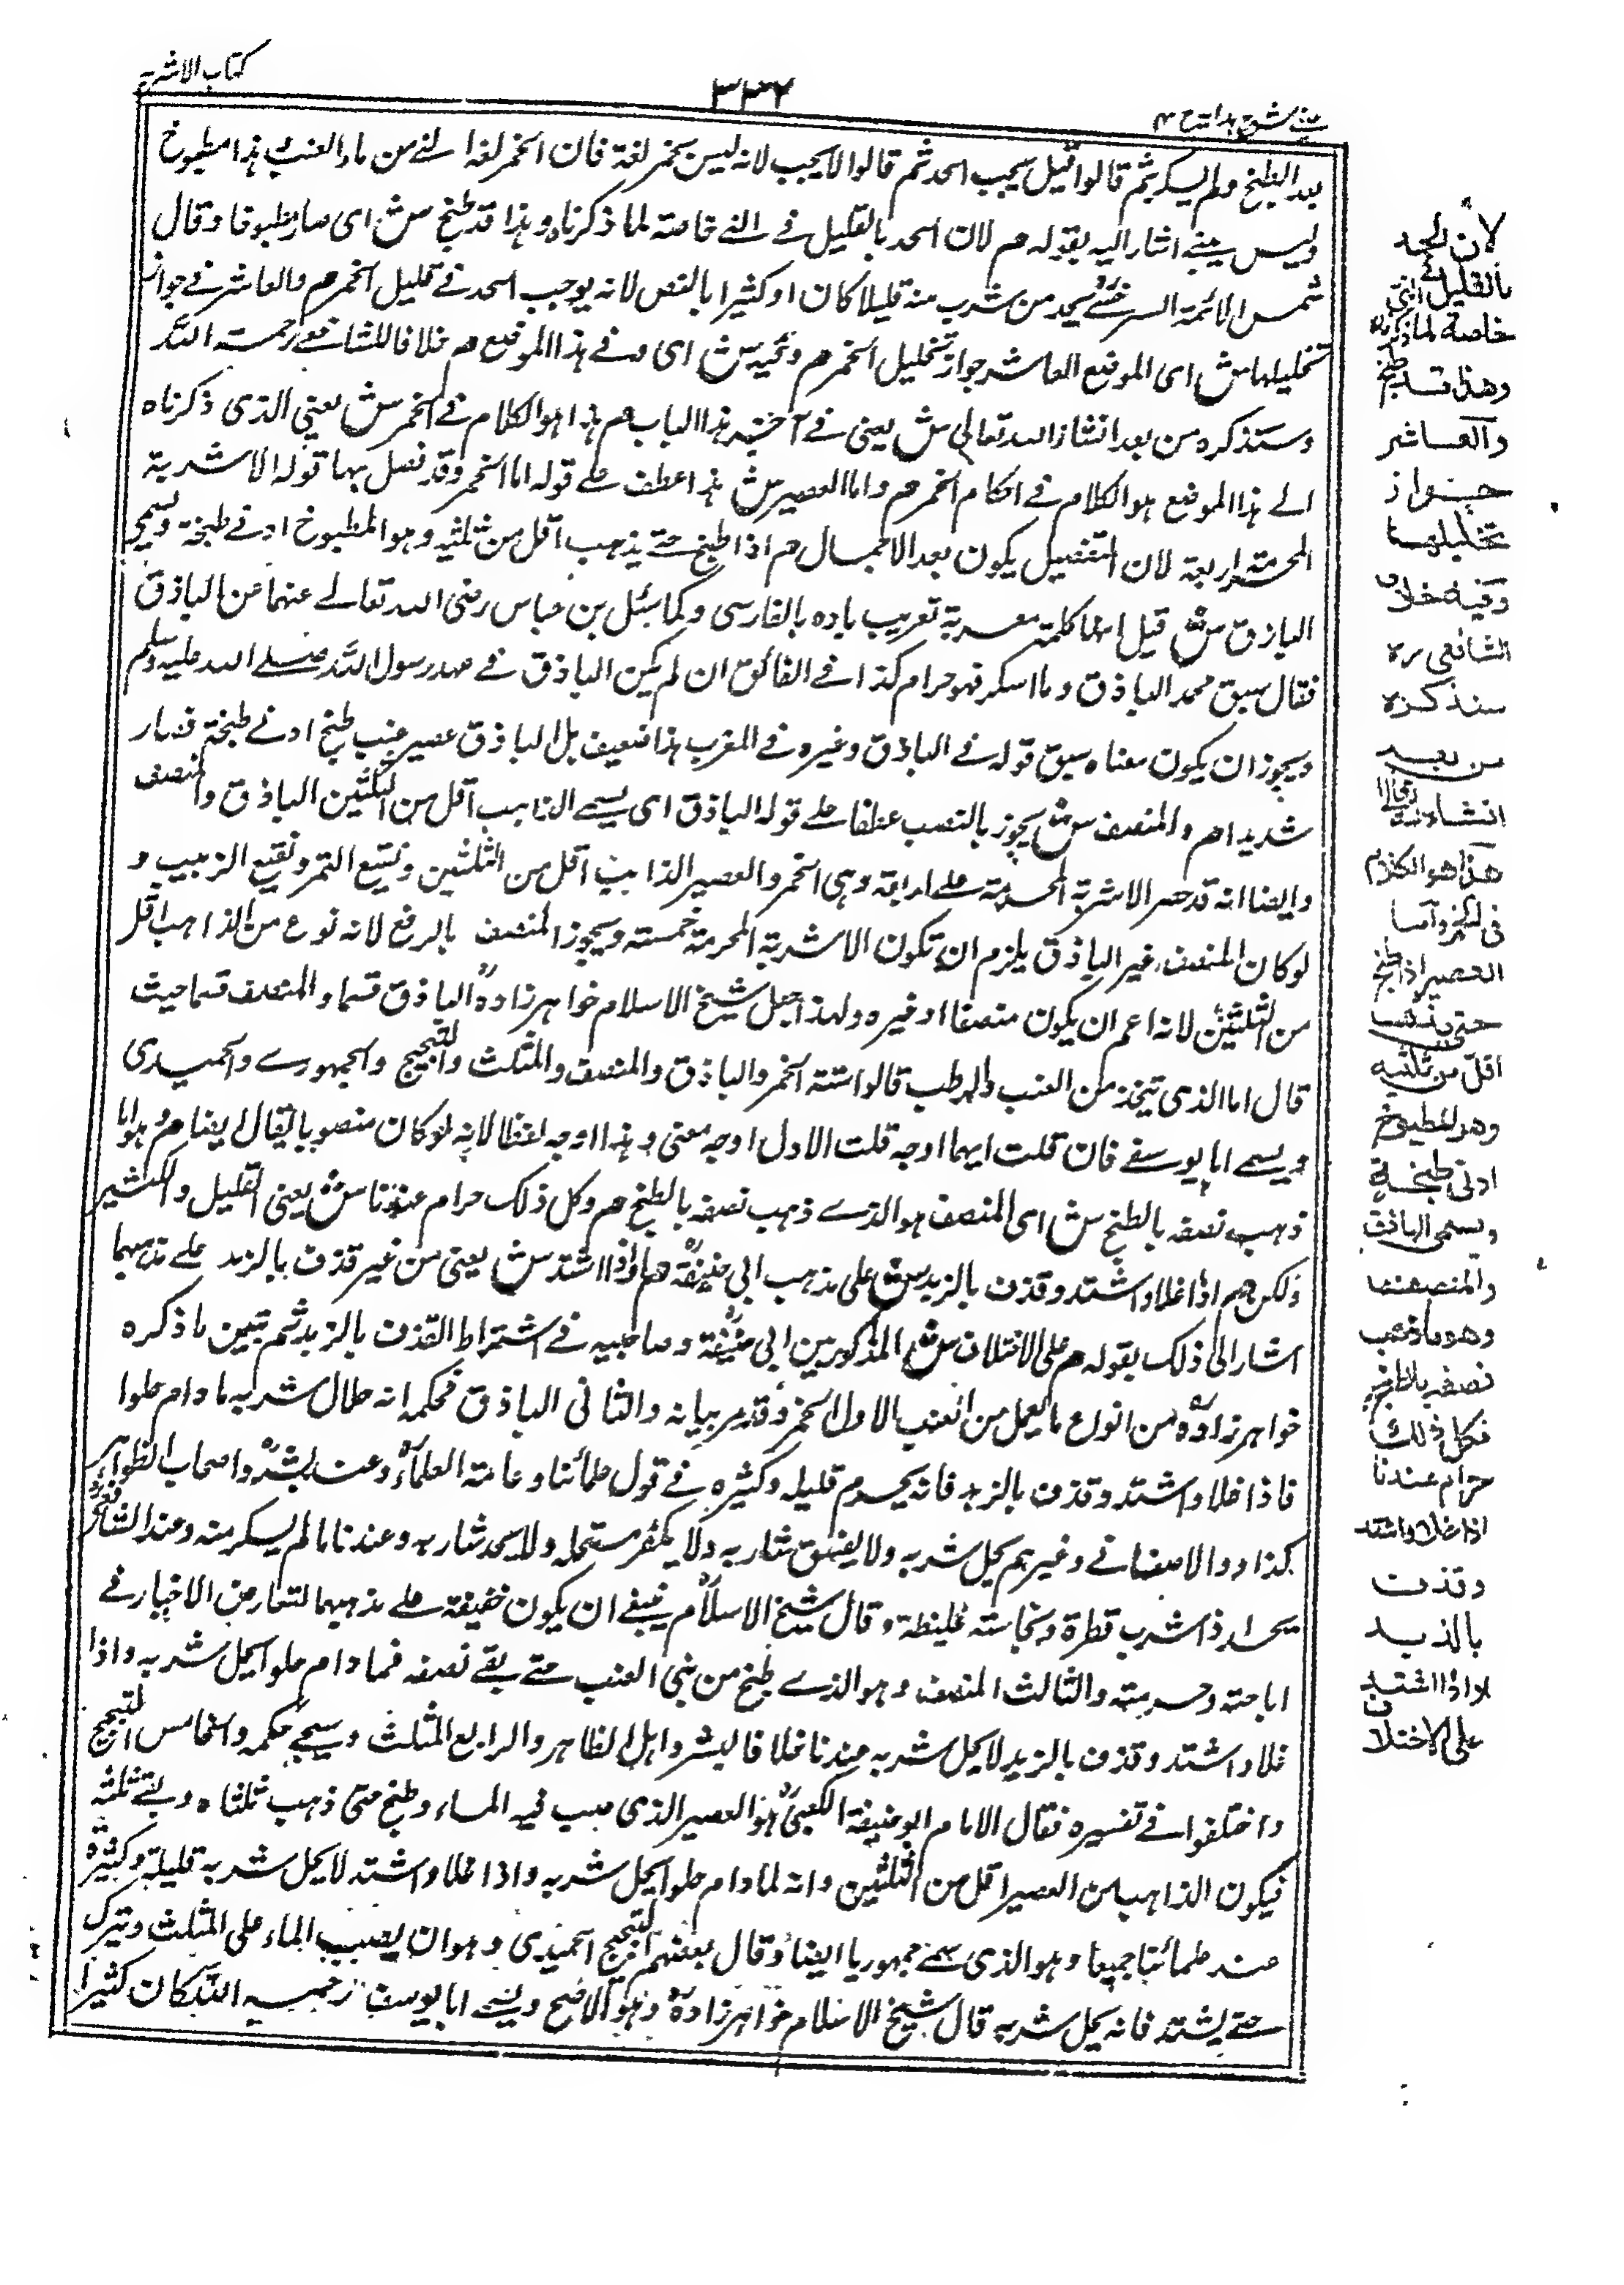 كتاب الاشربة
٣٣٢
عينى شرح هداية ج ٤
بعد الطبخ ولم يسكر ثم قالوا قيل يجب الحد ثم قالوا لا يجب لانه ليس بخمر لغة فان الخمر لغة النى من ماء العنب وهذا مطبوخ
وليس بنى اشار اليه بقوله م لان الحد بالقليل فى النى خاصة لما ذكرناه وهذا قد طبخ ش اى صار مطبوخا وقال
شمس الائمة السرخسى يحد من شرب منه قليلا كان او كثيرا بالنص لانه يوجب الحد فى قليل الخمر م والعاشر فى جواز
تخليلها ش اى الموضع العاشر جواز تخليل الخمر م وفيه ش اى وفى هذا الموضع م خلافا للشافعى رحمة الله
وسنذكره من بعد انشاء الله تعالى ش يعنى فى آخر هذا الباب م هذا هو الكلام فى الخمر ش يعنى الذى ذكرناه
الى هذا الموضع هو الكلام فى احكام الخمر م واما العصير ش هذا عطف على قوله اما الخمر وقد فصل بها قوله الاشربة
المحرمة اربعة لان التفصيل يكون بعد الاجمال م اذا طبخ حتى يذهب اقل من ثلثيه وهو المطبوخ ادنى طبخة ويسمى
الباذق ش قيل انها كلمة معربة تعريب باده بالفارسى وكما سئل بن عباس رضى الله تعالى عنهما عن الباذق
فقال سبق محمد الباذق وما اسكر فهو حرام كذا فى الفائق ان لم يكن الباذق فى عهد رسول الله صلى الله عليه وسلم
ويجوز ان يكون معناه سبق قوله فى الباذق وغيره وفى المغرب هذا ضعيف بل الباذق عصير عنب طبخ ادنى طبخة فصار
شديدا م والمنصف ش يجوز بالنصب عطفا على قوله الباذق اى يسمى الذاهب اقل من الثلثين الباذق والمنصف
وايضا انه قد حصر الاشربة المحرمة على اربعة وهى الخمر والعصير الذاهب اقل من الثلثين ونقيع التمر ونقيع الزبيب و
لو كان المنصف غير الباذق يلزم ان تكون الاشربة المحرمة خمسة ويجوز المنصف بالرفع لانه نوع من الذاهب اقل
من الثلثين لانه اعم ان يكون منصفا او غيره ولهذا جعل شيخ الاسلام خواهر زاده الباذق قسما والمنصف قسما حيث
قال اما الذى يتخذ من العنب والرطب قالوا ستة الخمر والباذق والمنصف والمثلث والبختج والجمهورى والحميدى
ويسمى ابا يوسفى فان قلت ايهما اوجه قلت الاول اوجه معنى وهذا اوجه لفظا لانه لو كان منصوبا لقال ايضا م وهو ما
ذهب نصفه بالطبخ ش اى المنصف هو الذى ذهب نصفه بالطبخ م وكل ذلك حرام عندنا ش يعنى القليل والكثير
ولكن م اذا غلا واشتد وقذف بالزبد ش على مذهب ابى حنيفة م او اذا اشتد ش يعنى من غير قذف بالزبد على مذهبهما
اشار الى ذلك بقوله م على الاختلاف ش المذكور بين ابى حنيفة وصاحبيه فى اشتراط القذف بالزبد ثم تبين ما ذكره
خواهر زاده من انواع ما يعمل من العنب الاول الخمر وقد مر بيانه والثانى الباذق فحكمه انه حلال شربه ما دام حلوا
فاذا غلا واشتد وقذف بالزبد فانه يحرم قليله وكثيره فى قول علمائنا وعامة العلماء وعند بشر واصحاب الظواهر
كداود والاصفهانى وغيرهم يحل شربه ولا يفسق شاربه ولا يكفر مستحله ولا يحد شاربه وعندنا ما لم يسكر منه وعند الشافعى
يحد اذا شرب قطرة ونجاسته غليظة وقال شيخ الاسلام ينبغى ان يكون خفيفة على مذهبهما لتعارض الاخبار فى
اباحته وحرمته والثالث المنصف وهو الذى طبخ من نى العنب حتى بقى نصفه فما دام حلوا يحل شربه واذا
غلا واشتد وقذف بالزبد لا يحل شربه عندنا خلافا لبشر واهل الظاهر والرابع المثلث وسيجئ حكمه والخامس البختج
واختلفوا فى تفسيره فقال الامام ابو حنيفة الكعبى هو العصير الذى صب فيه الماء وطبخ حتى ذهب ثلثاه وبقى ثلثه
فيكون الذاهب من العصير اقل من الثلثين وانه لما دام حلوا يحل شربه واذا غلا واشتد لا يحل شربه قليله وكثيره
عند علمائنا جميعا وهو الذى يسمى جمهوريا ايضا وقال بعضهم البختج الحميدى وهو ان يصب الماء على المثلث ويترك
حتى يشتد فانه يحل شربه قال شيخ الاسلام خواهر زاده وهو الاصح ويسمى ابا يوسف رحمه الله كان كثيرا
لان الحد
بالقليل فى النى
خاصة لما ذكرناه
وهذا قد طبخ
والعاشر
جواز
تخليلها
وفيه خلاف
الشافعى ره
سنذكره
من بعد
انشاء الله تعالى
هذا هو الكلام
فى الخمر واما
العصير اذا طبخ
حتى يذهب
اقل من ثلثيه
وهو المطبوخ
ادنى طبخة
ويسمى الباذق
والمنصف
وهو ما ذهب
نصفه بالطبخ
فكل ذلك
حرام عندنا
اذا غلا واشتد
وقذف
بالزبد
او اذا اشتد
على الاختلاف